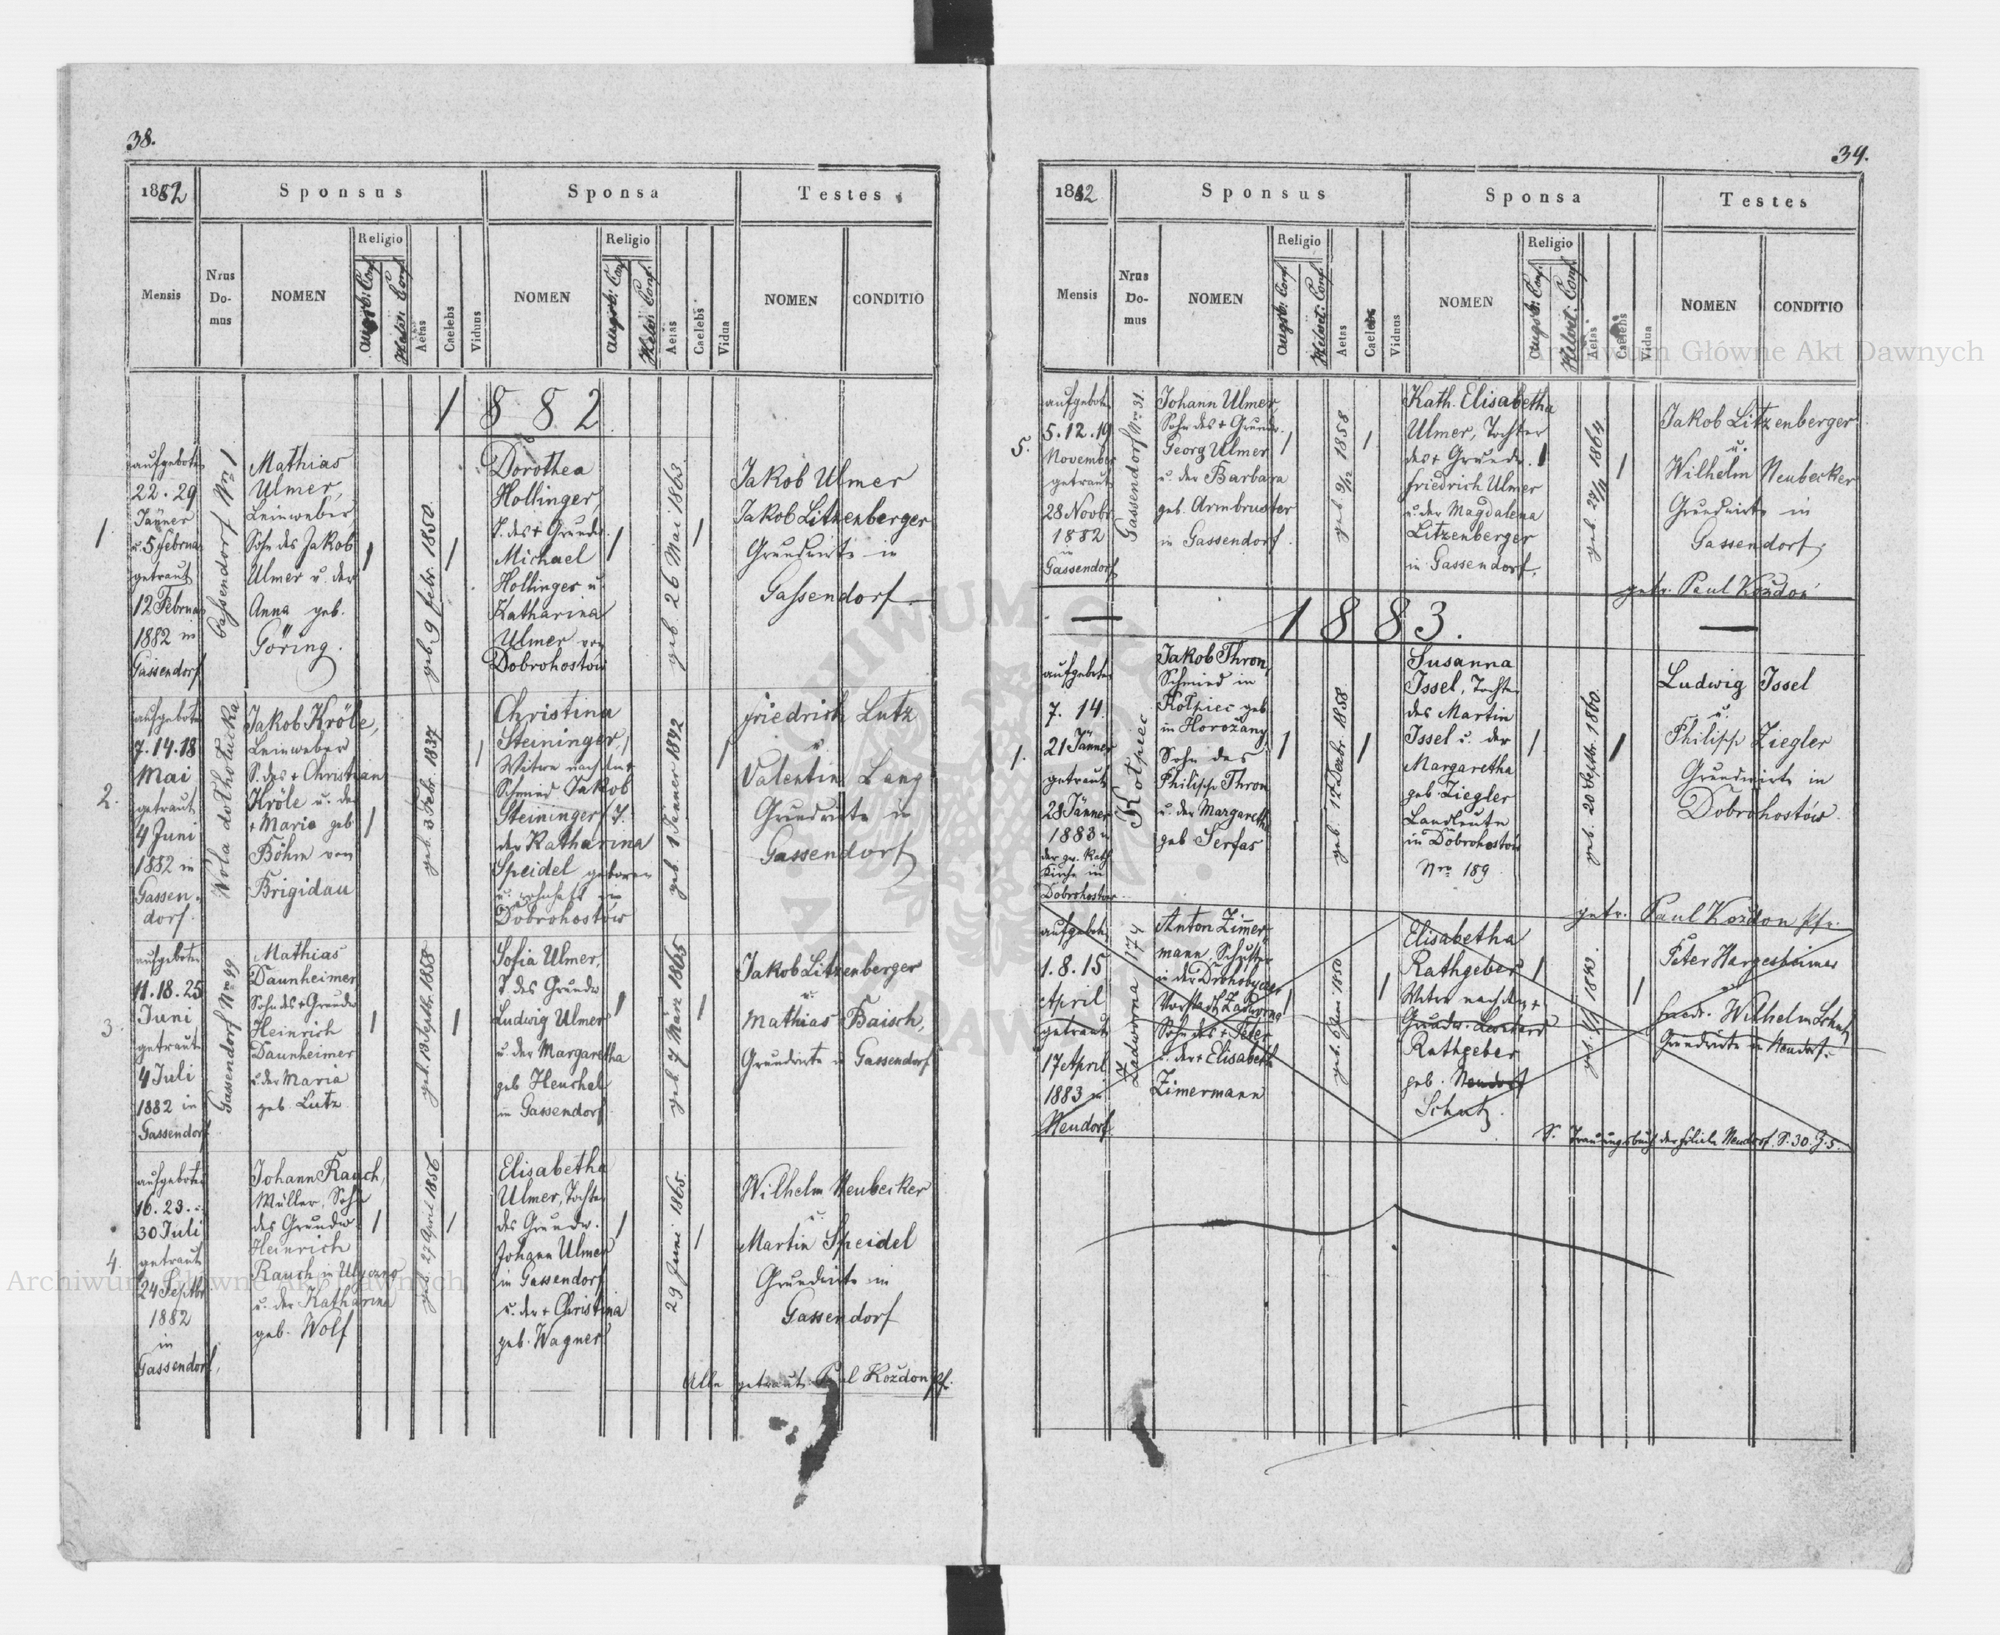 38.
1882
Sponsus
Sponsa
Testes
Mensis
Nrus Domus
NOMEN
Religio
Augsb. Conf.
Helv. Conf.
Aetas
Caelebs
Viduus
NOMEN
Religio
Augsb. Conf.
Helv. Conf.
Aetas
Caelebs
Vidua
NOMEN
CONDITIO
1882
1.
aufgeboten
22. 29
Jänner
u. 5 Februar
getraut
12 Februar
1882 in
Gassendorf
Gassendorf Nro 1
Mathias
Ulmer,
Leinweber,
Sohn des Jakob
Ulmer u. der
Anna geb.
Göring.
geb. 9 Febr. 1850.
Dorothea
Hollinger,
T. des + Grundw.
Michael
Hollinger u.
Katharina
Ulmer von
Dobrohostów
geb. 26 Mai 1863.
Jakob Ulmer
Jakob Litzenberger
Grundwirte in
Gassendorf.
2.
aufgeboten
7. 14. 18
Mai
getraut
4 Juni
1882 in
Gassen-
dorf.
Wola dołhołucka
Jakob Kröle,
Leinweber
S. des + Christian
Kröle u. der
+ Maria geb
Böhm von
Brigidau
geb. 3 Febr. 1837
Christina
Steininger,
Witwe nach dem +
Schmied Jakob
Steininger, T.
der Katharina
Speidel geboren
u. wohnhaft in
Dobrohostów
geb. 1 Jänner 1842
Friedrich Lutz
u.
Valentin Lang
Grundwirte in
Gassendorf
3.
aufgeboten
11. 18. 25
Juni
getraut
4 Juli
1882 in
Gassendorf
Gassendorf Nro 49
Mathias
Daunheimer
Sohn des + Grundw
Heinrich
Daunheimer
u. der Maria
geb. Lutz
geb. 13 Septbr. 1858
Sofia Ulmer,
T. des Grundw
Ludwig Ulmer
u. der Margaretha
geb Henschel
in Gassendorf
geb. 7 März 1865
Jakob Litzenberger
u.
Mathias Baisch,
Grundwirte in Gassendorf
4.
aufgeboten
16. 23.
30 Juli
getraut
24 Septbr
1882
in
Gassendorf,
Johann Rauch,
Müller, Sohn
des Grundw.
Heinrich
Rauch in Ulyczno
u. der Katharina
geb. Wolf
geb. 27 April 1856
Elisabetha
Ulmer, Tochter
des Grundw.
Johann Ulmer
in Gassendorf
u. der + Christina
geb. Wagner
29 Juni 1865.
Wilhelm Neubecker
u.
Martin Speidel
Grundwirte in
Gassendorf
Alle getraut: Paul Kożdon Pf.
34.
1882
Sponsus
Sponsa
Testes
Mensis
Nrus Domus
NOMEN
Religio
Augsb. Conf.
Helvet. Conf.
Aetas
Caelebs
Viduus
NOMEN
Religio
Augsb. Conf.
Helvet. Conf.
Aetas
Caelebs
Vidua
NOMEN
CONDITIO
5.
aufgeboten
5. 12. 19
November
getraut
28 Novbr.
1882
in
Gassendorf
Gassendorf Nro 31.
Johann Ulmer,
Sohn des + Grundw.
Georg Ulmer
u. der Barbara
geb. Armbruster
in Gassendorf.
geb. 9/12 1858
Kath. Elisabetha
Ulmer, Tochter
des + Grundw.
Friedrich Ulmer
u. der Magdalena
Litzenberger
in Gassendorf.
Jakob Litzenberger
u.
Wilhelm Neubecker
Grundwirte in
Gassendorf,
getr. Paul Kożdon
1883.
1.
aufgeboten
7. 14.
21 Jänner
getraut
28 Jänner
1883 in
der gr. Kath
Kirche in
Dobrohostów
Kołpiec
Jakob Thron,
Schmied in
Kołpiec geb
in Horożany
Sohn des
Philipp Thron
u. der Margaretha
geb Serfas
geb. 17 Dezbr. 1858.
Susanna
Issel, Tochter
des Martin
Issel u. der
Margaretha
geb. Ziegler
Landleute
in Dobrohostów
Nro 189
geb. 20 Septbr. 1860.
Ludwig Issel
u.
Philipp Ziegler
Grundwirte in
Dobrohostów.
getr. Paul Kożdon Pfr.
aufgeboten
1. 8. 15
April
getraut
17 April
1883 in
Neudorf
Zadwórna 174
Anton Zimer-
mann, Schuster
in der Drohobyczer
Vorstadt Zadwórna
Sohn des + Peter
u. der + Elisabeth
Zimermann
Elisabetha
Rathgeber,
Witwe nach dem +
Grundw. Leonhard
Rathgeber
geb. Neudorf
Schutz.
Peter Hargesheimer
u.
Wilhelm Schutz
Grundwirte in Neudorf.
S. Trauungsbuch der Filiale Neudorf. S. 30. Z. 5.
Archiwum Główne Akt Dawnych
Archiwum Główne Akt Dawnych